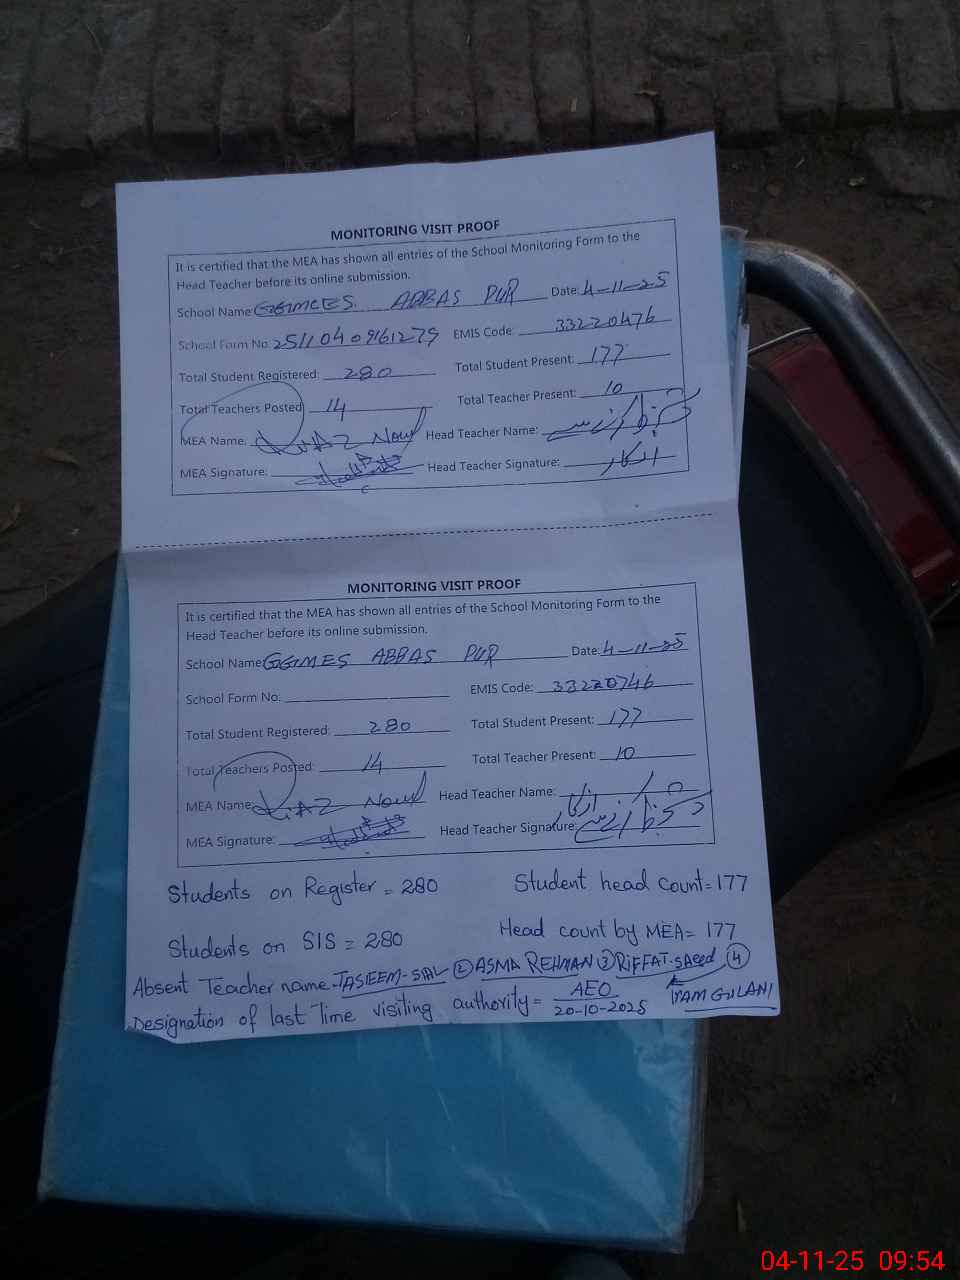 MONITORING VISIT PROOF
It is certified that the MEA has shown all entries of the School Monitoring Form to the
Head Teacher before its online submission.
School Name: GGMCES. ABBAS PUR Date: 4-11-25
School Form No: 25110409161279 EMIS Code: 33220476
Total Student Registered: 280 Total Student Present: 177
Total Teachers Posted: 14 Total Teacher Present: 10
MEA Name: Head Teacher Name:
MEA Signature: Head Teacher Signature: انکار
MONITORING VISIT PROOF
It is certified that the MEA has shown all entries of the School Monitoring Form to the
Head Teacher before its online submission.
School Name: GGMES ABBAS PUR Date: 4-11-25
School Form No: EMIS Code: 33220746
Total Student Registered: 280 Total Student Present: 177
Total Teachers Posted: 14 Total Teacher Present: 10
MEA Name: Head Teacher Name: انکار
MEA Signature: Head Teacher Signature:
Students on Register = 280 Student head count = 177
Students on SIS = 280 Head count by MEA = 177
Absent Teacher name - TASLEEM-SIAL ② ASMA REHMAN ③ RiFFAT-SAeed ④
Designation of last Time visiting authority = AEO GILANI
20-10-2025
04-11-25 09:54